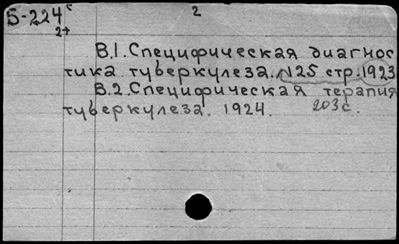 Б-224с 2
2+
В.1. Специфическая диагнос
тика туберкулеза. 125 стр. 1923
В.2. Специфическая терапия
туберкулеза. 1924. 203 с.